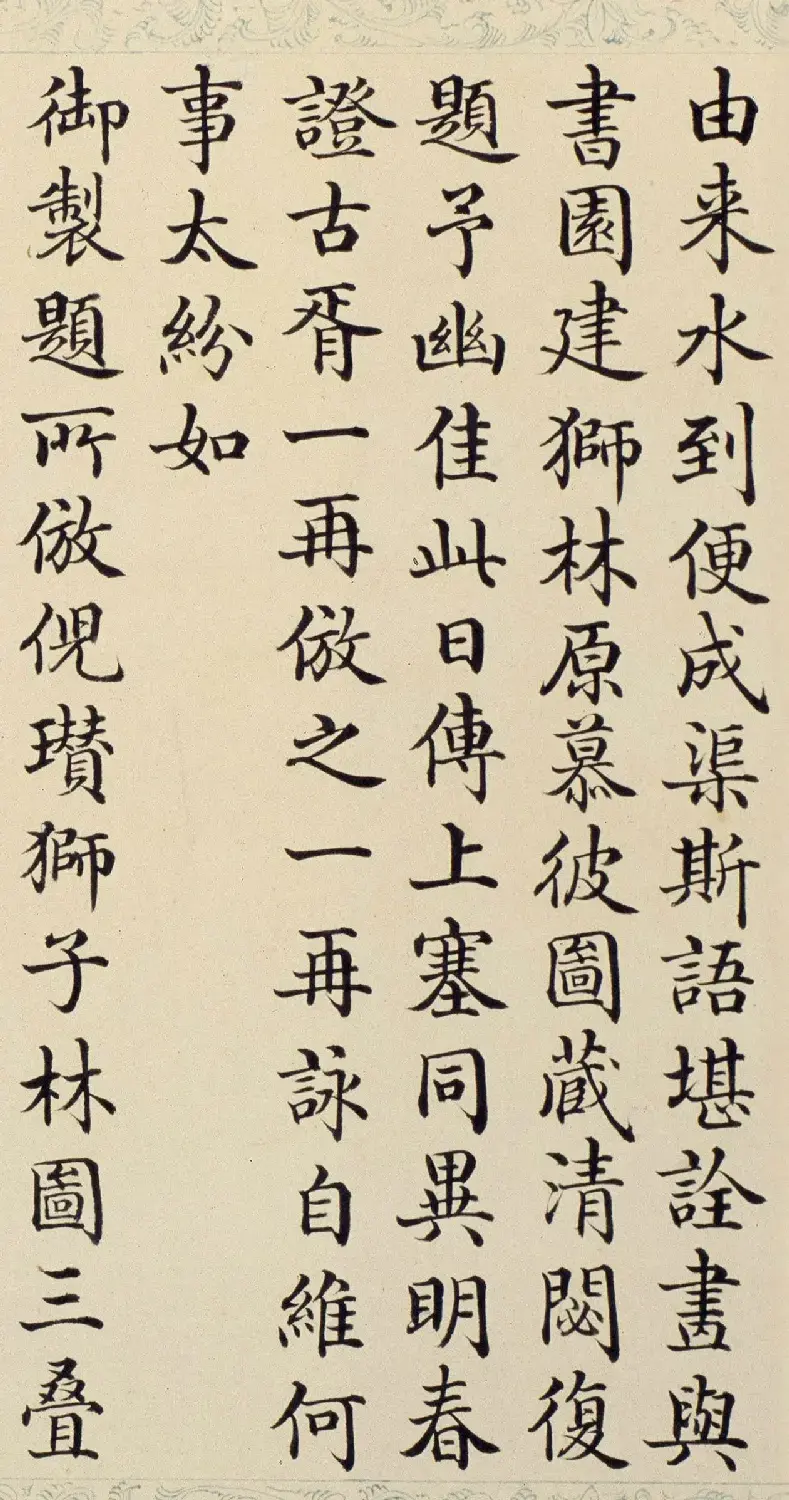 由来水到便成渠斯語堪詮畫與
書園建獅林原慕彼圖蔵清閟復
題予幽佳此日傳上塞同異明春
證古胥一再倣之一再詠自維何
事太紛如
御製題所倣倪瓚獅子林圖三叠